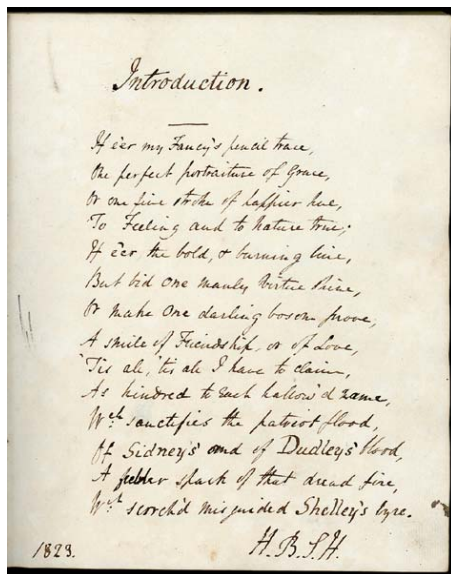 Introduction.
If e'er my Fancy's pencil trace,
One perfect portraiture of Grace,
Or one fine stroke of happier hue,
To Feeling and to Nature true;
If e'er the bold, & burning line,
But bid one manly Virtue shine,
Or make One darling bosom prove,
A smile of Friendship, or of Love,
'Tis all, 'tis all I have to claim,
As kindred to each hallow'd name,
Wch sanctifies the patriot flood,
Of Sidney's and of Dudley's blood,
A feebler spark of that dread fire,
Wch scorch'd misguided Shelley's lyre.
H. B. S. H.
1823.